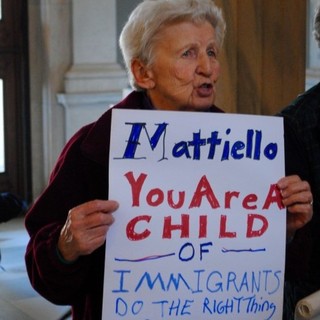 Mattiello
You Are A
CHILD
OF
IMMIGRANTS
DO THE RIGHT Thing